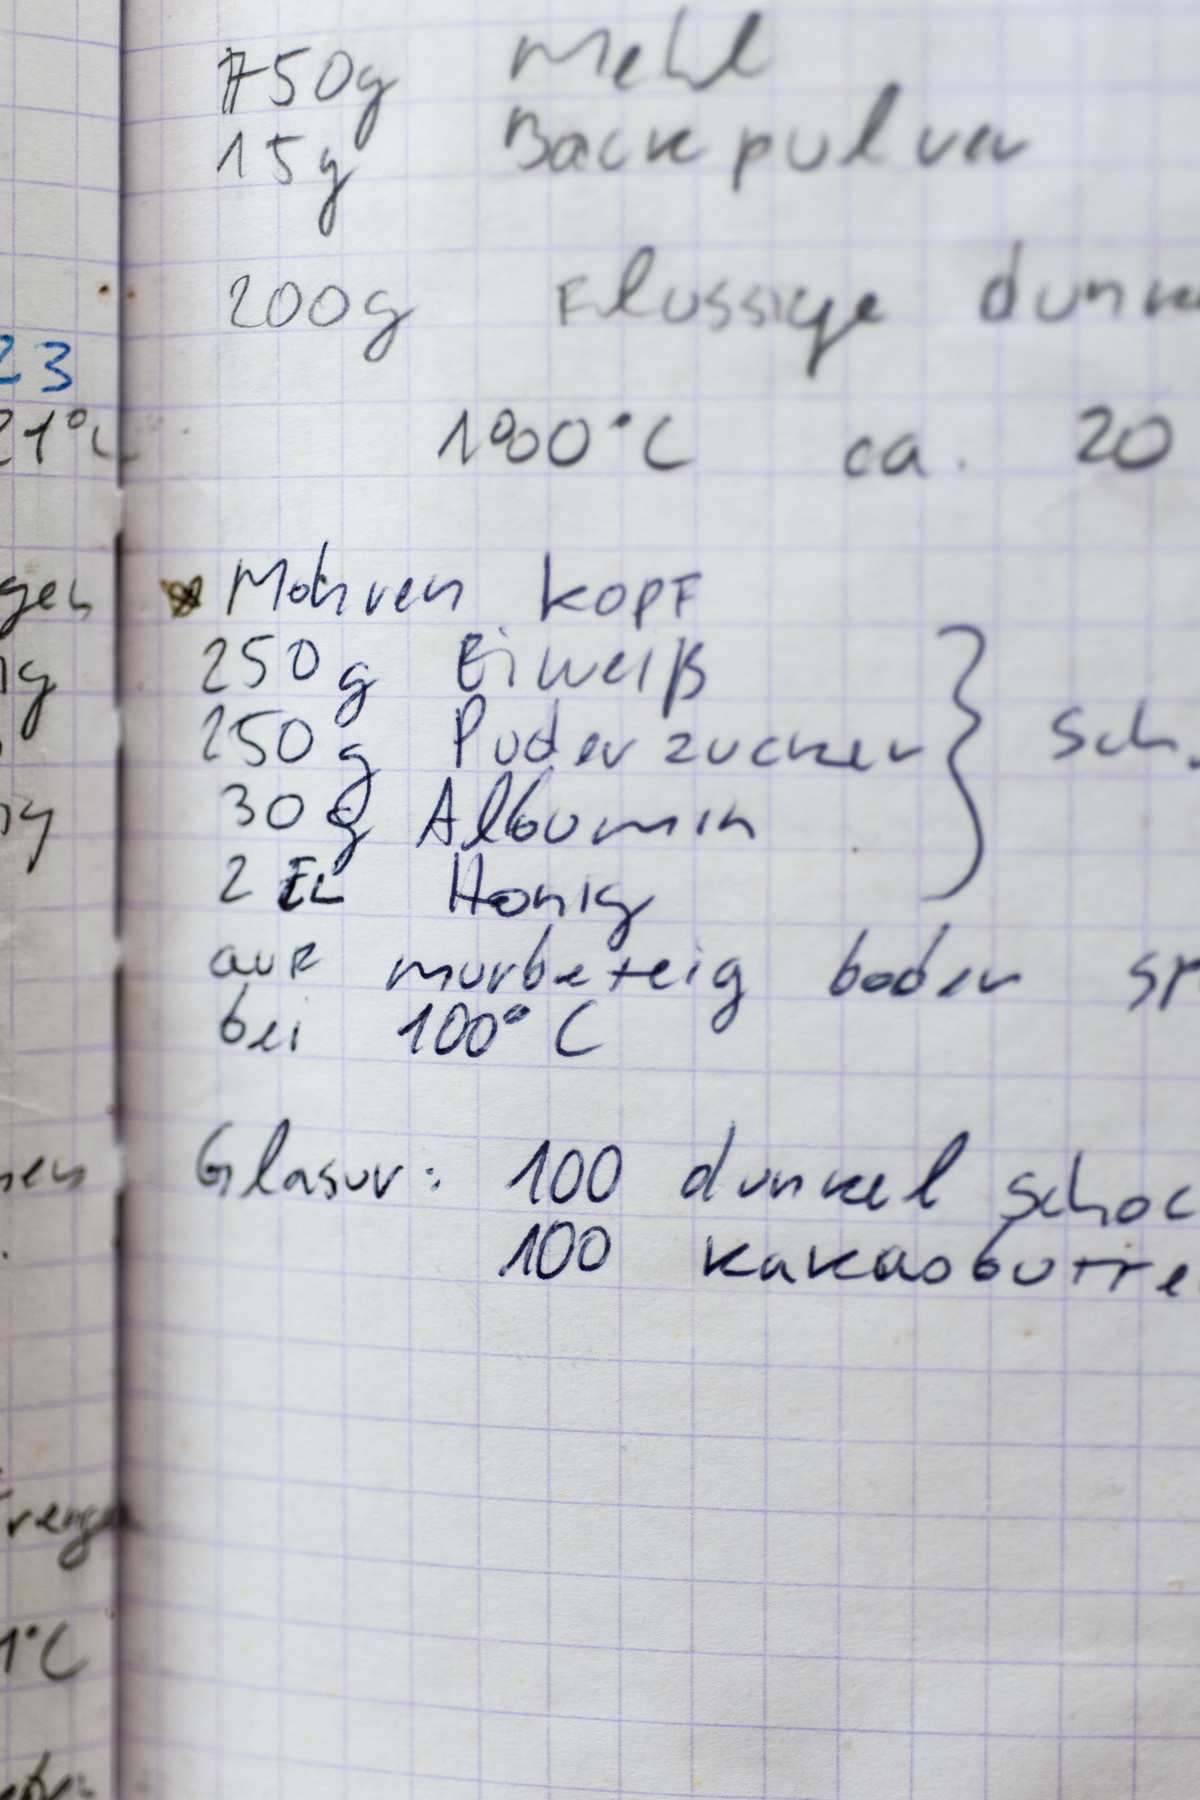 23
21°C
750g Mehl
15g Backpulver
200g Flussige dunke
180°C ca. 20
Mohren kopf
250g Eiweiß
250g Puderzucker
30g Albumin
2 EL Honig
Sch
auf murbeteig boden sp
bei 100°C
Glasur: 100 dunkel schoc
100 kakaobutte
1°C